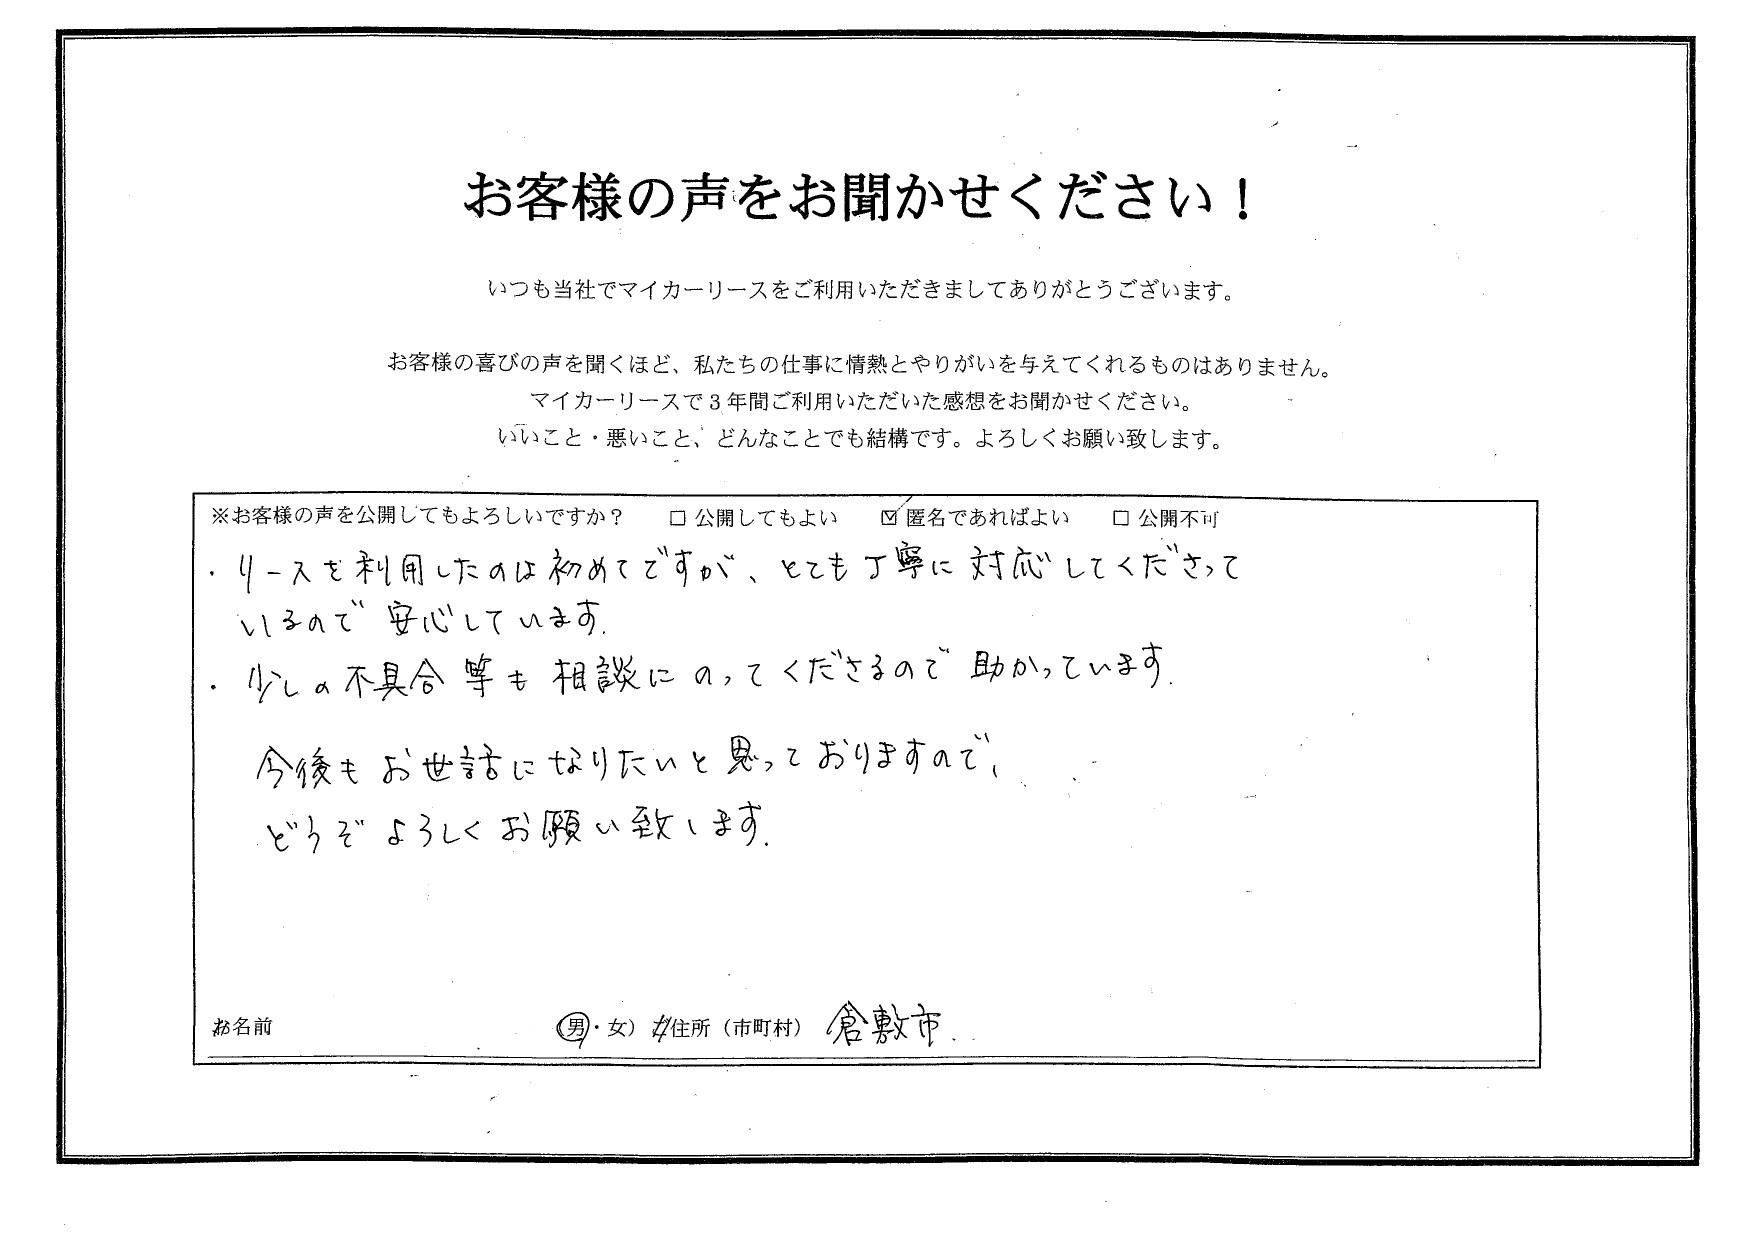 お客様の声をお聞かせください！
いつも当社でマイカーリースをご利用いただきましてありがとうございます。
お客様の喜びの声を聞くほど、私たちの仕事に情熱とやりがいを与えてくれるものはありません。
マイカーリースで３年間ご利用いただいた感想をお聞かせください。
いいこと・悪いこと、どんなことでも結構です。よろしくお願い致します。
※お客様の声を公開してもよろしいですか？ □ 公開してもよい ☑ 匿名であればよい □ 公開不可
・リースを利用したのは初めてですが、とても丁寧に対応してくださって
いるので安心しています.
・少しの不具合等も相談にのってくださるので助かっています.
今後もお世話になりたいと思っておりますので、
どうぞよろしくお願い致します.
お名前 （男・女） 住所（市町村） 倉敷市